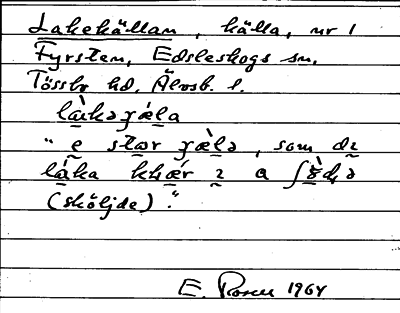 Lakekällan, källa, nr 1
Fyrsten, Edsleskogs sn,
Tössbo hd, Älvsb. l.
là̱kəɣɛ́la
"e̱ sta̱r ɣæ̀lə, som də̱
lá̱ka khæ̱r ɪ̱ a ʃö̱̀ḷə
(sköljde)."
E. Rosen 1964